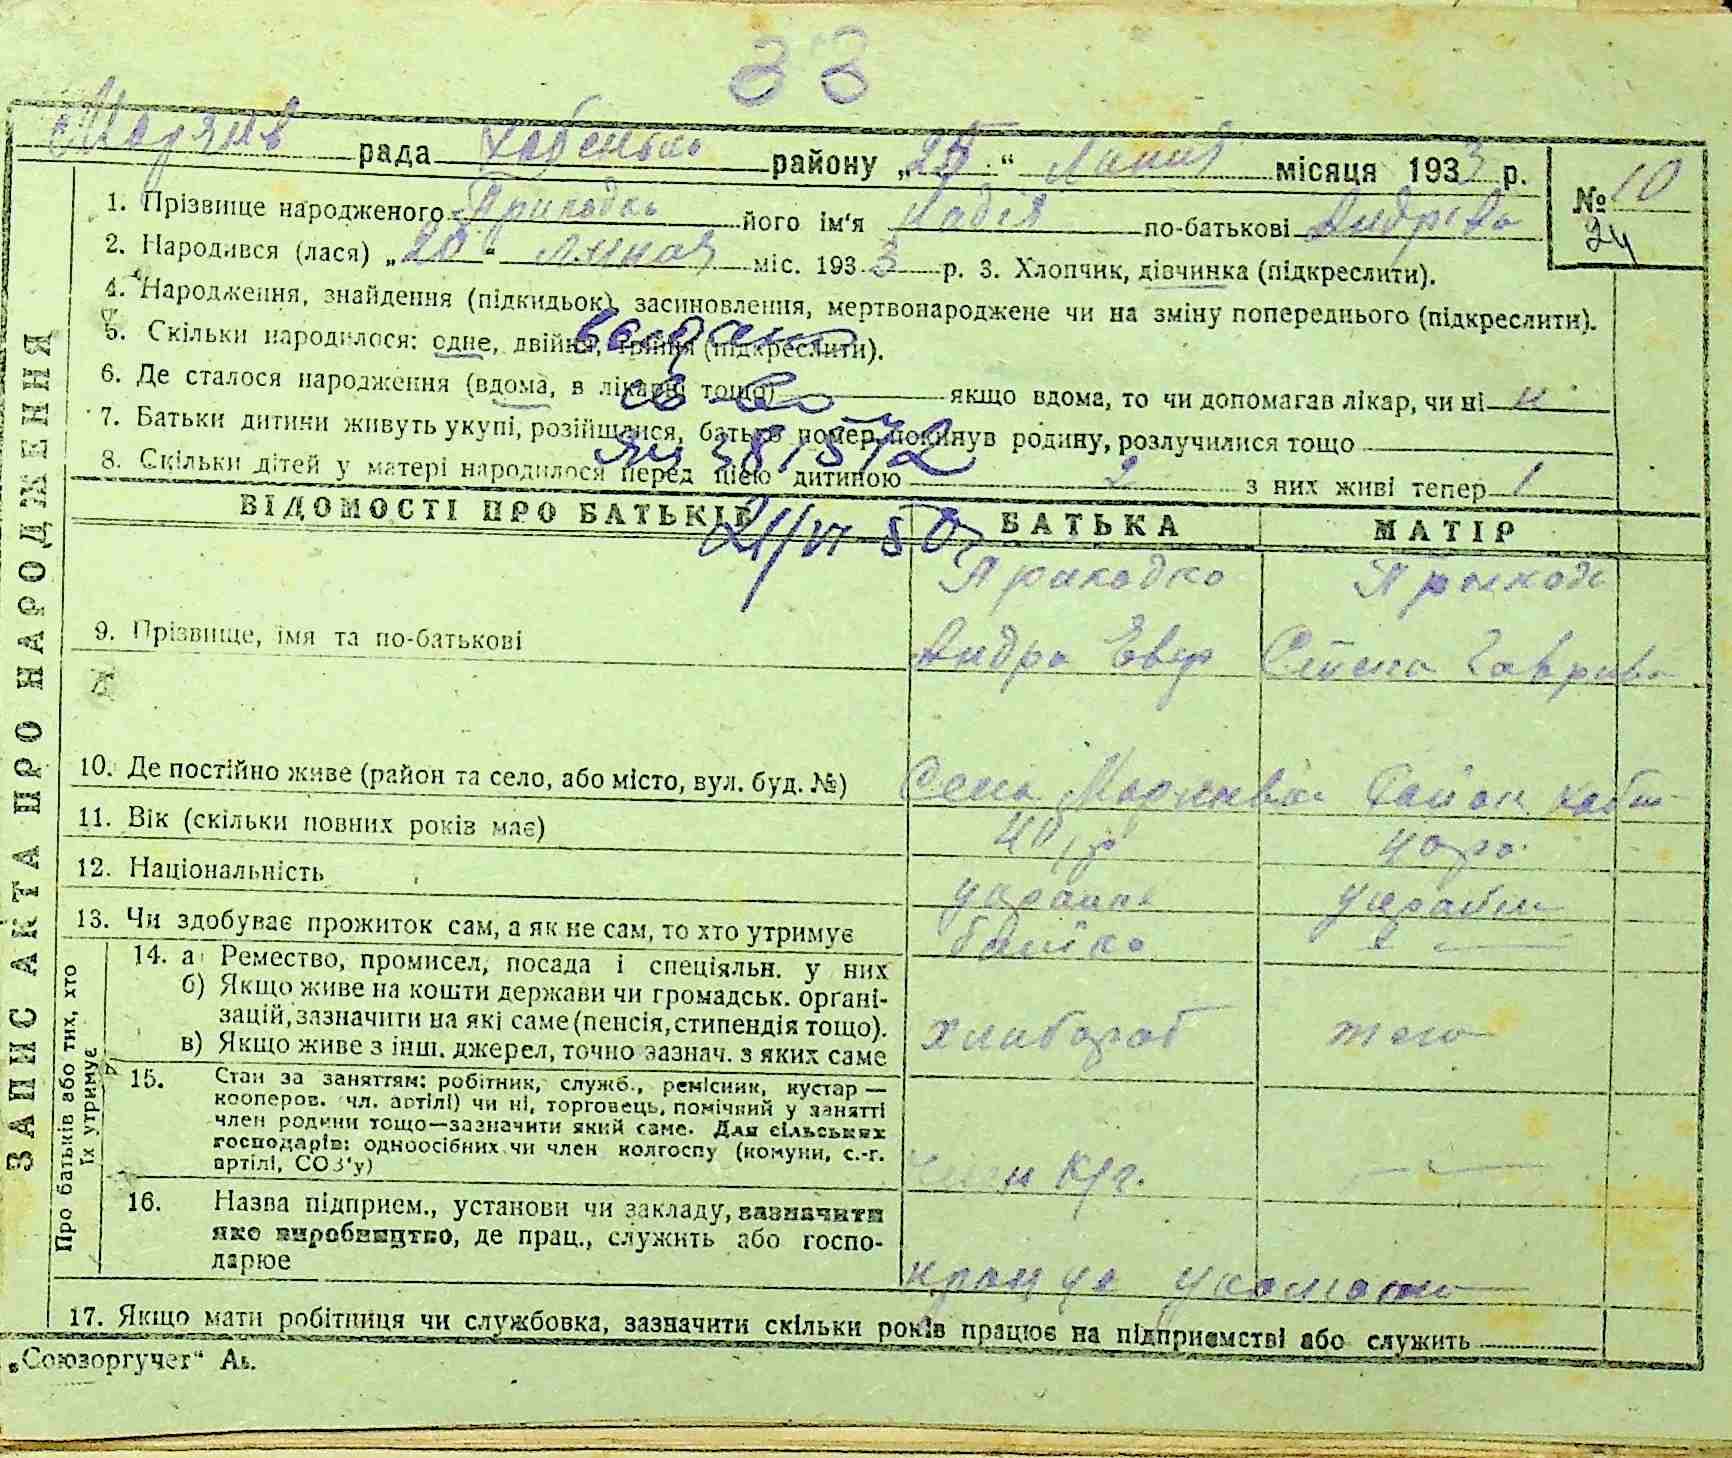 33
рада Хабенько району „25“ Липня місяця 1933 р.
№ 10
24
1. Прізвище народженого Приходько його ім‘я Надія по-батькові Андрієвн
2. Народився (лася) „20“ липня міс. 1933 р. 3. Хлопчик, дівчинка (підкреслити).
4. Народження, знайдення (підкидьок), засиновлення, мертвонароджене чи на зміну попереднього (підкреслити).
5. Скільки народилося: одне, двійня, трійня (підкреслити).
6. Де сталося народження (вдома, в лікарні тощо) якщо вдома, то чи допомагав лікар, чи ні н
7. Батьки дитини живуть укупі, розійшлися, батько помер, покинув родину, розлучилися тощо
8. Скільки дітей у матері народилося перед цією дитиною 2 з них живі тепер 1
выдано
св-во
381572
21/VI 50г
ВІДОМОСТІ ПРО БАТЬКІВ БАТЬКА МАТІР
Приходко Приходь
9. Прізвище, імя та по-батькові Андрі Гаврив
10. Де постійно живе (район та село, або місто, вул. буд. №) Село район Хабн
11. Вік (скільки повних років має) 40 р 40 ро
12. Національність україне україн
13. Чи здобуває прожиток сам, а як не сам, то хто утримує батько
14. а) Ремество, промисел, посада і спеціяльн. у них
б) Якщо живе на кошти держави чи громадськ. органі-
зацій, зазначити на які саме (пенсія, стипендія тощо). хлибороб тею
в) Якщо живе з інш. джерел, точно зазнач. з яких саме
15. Стан за заняттям: робітник, служб., ремісник, кустар —
кооперов. чл. артілі) чи ні, торговець, помічний у занятті
член родини тощо—зазначити який саме. Для сільських
господарів: одноосібних чи член колгоспу (комуни, с.-г.
артілі, СОЗ‘у) член К/г.
16. Назва підприєм., установи чи закладу, зазначити
яке виробництво, де прац., служить або госпо-
дарює
17. Якщо мати робітниця чи службовка, зазначити скільки років працює на підприємстві або служить
„Союзоргучет“ Аь.
ЗАПИС АКТА ПРО НАРОДЖЕННЯ
Про батьків або тих, хто
їх утримує